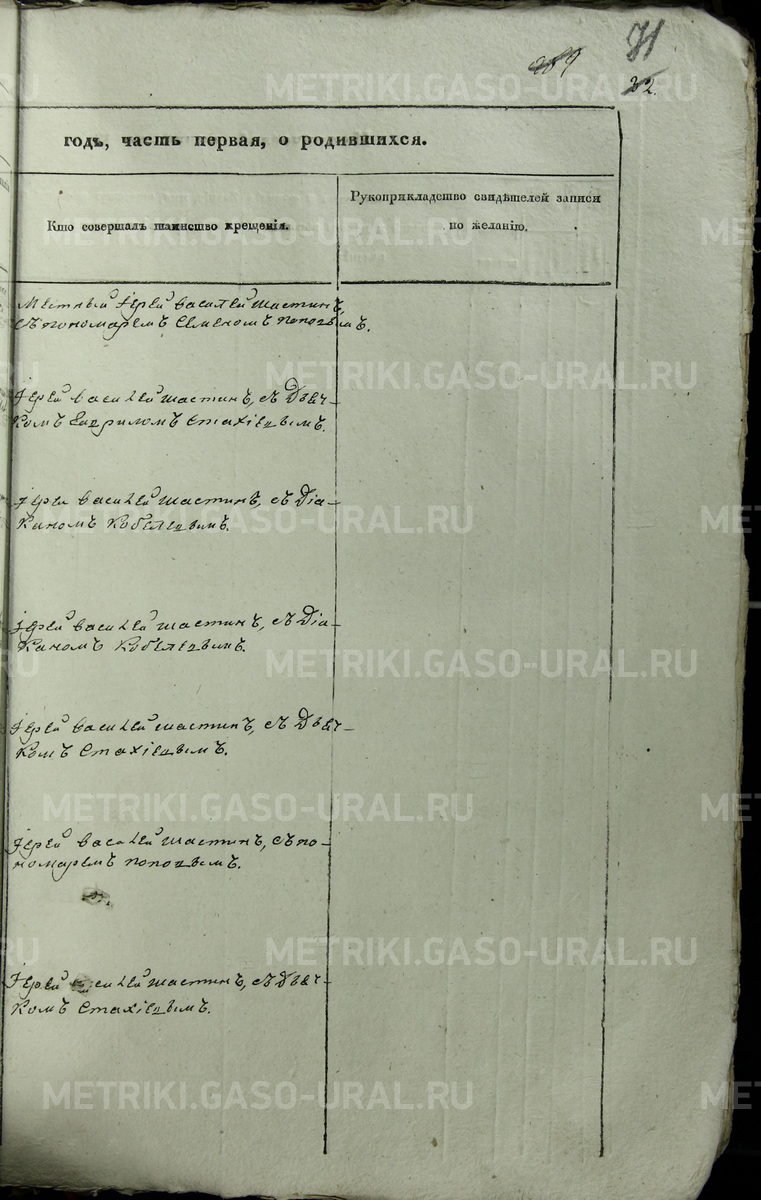 71
32.
годъ, часть первая, о родившихся.
Кто совершалъ таинство крещенія.
Рукоприкладство свидѣтелей записи
по желанію.
Мѣстный Іерей Василей Шастинъ,
съ пономаремъ Семеномъ Поповымъ.
Іерей Василей Шастинъ, съ Дьяч-
комъ Гавриломъ Стахіевымъ.
Іерей Василей Шастинъ, съ Діа-
каномъ Кобелевымъ.
Іерей Василей Шастинъ, съ Діа-
каномъ Кобелевымъ.
Іерей Василей Шастинъ, съ Дьяч-
комъ Стахіевымъ.
Іерей Василей Шастинъ, съ по-
номаремъ Поповымъ.
Іерей Василей Шастинъ, съ Дьяч-
комъ Стахіевымъ.
METRIKI.GASO-URAL.RU